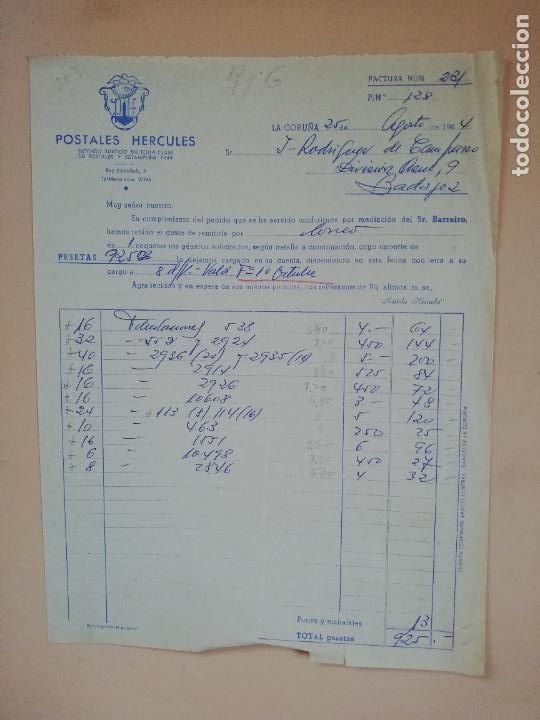 FACTURA NUM. 281
P/Nº 128
POSTALES HERCULES
EXTENSO SURTIDO EN TODA CLASE
DE POSTALES Y ESTAMPERIA FINA
Rey Abdullah, 5
LA CORUÑA 25 de Agosto de 1964
Sr. J- Rodríguez de Campano
División Azul, 9
Badajoz
Muy señor nuestro:
En cumplimiento del pedido que se ha servido conferirnos por mediación del Sr. Barreiro,
hemos tenido el gusto de remitirle por Correo
en 1 paquetes los géneros solicitados, según detalle a continuación, cuyo importe de
PESETAS 925 lo dejamos cargado en su cuenta, disponiendo en esta fecha con letra a su
cargo a 8 d/f. Valor F=1º Octubre
Agradecidos y en espera de sus nuevos pedidos, nos reiteramos de Vd. afmos. ss. ss.
Postales Hércules
16 Felicitaciones 538 4.- 64
32 - 552 y 2924 450 144
40 - 2936 (24) y 2935 (16) 5.- 200
16 - 2914 525 84
16 - 2926 450 72
16 - 10608 3.- 48
24 - 113 (8) 114 (16) 5 120
10 - 463 250 25
16 - 1551 6 96
6 - 10498 450 27
8 - 2846 4 32
CUENTA CORRIENTE: BANCO CENTRAL - BANCO DE LA CORUÑA
Portes y embalajes 13
TOTAL pesetas 925.-
todocoleccion